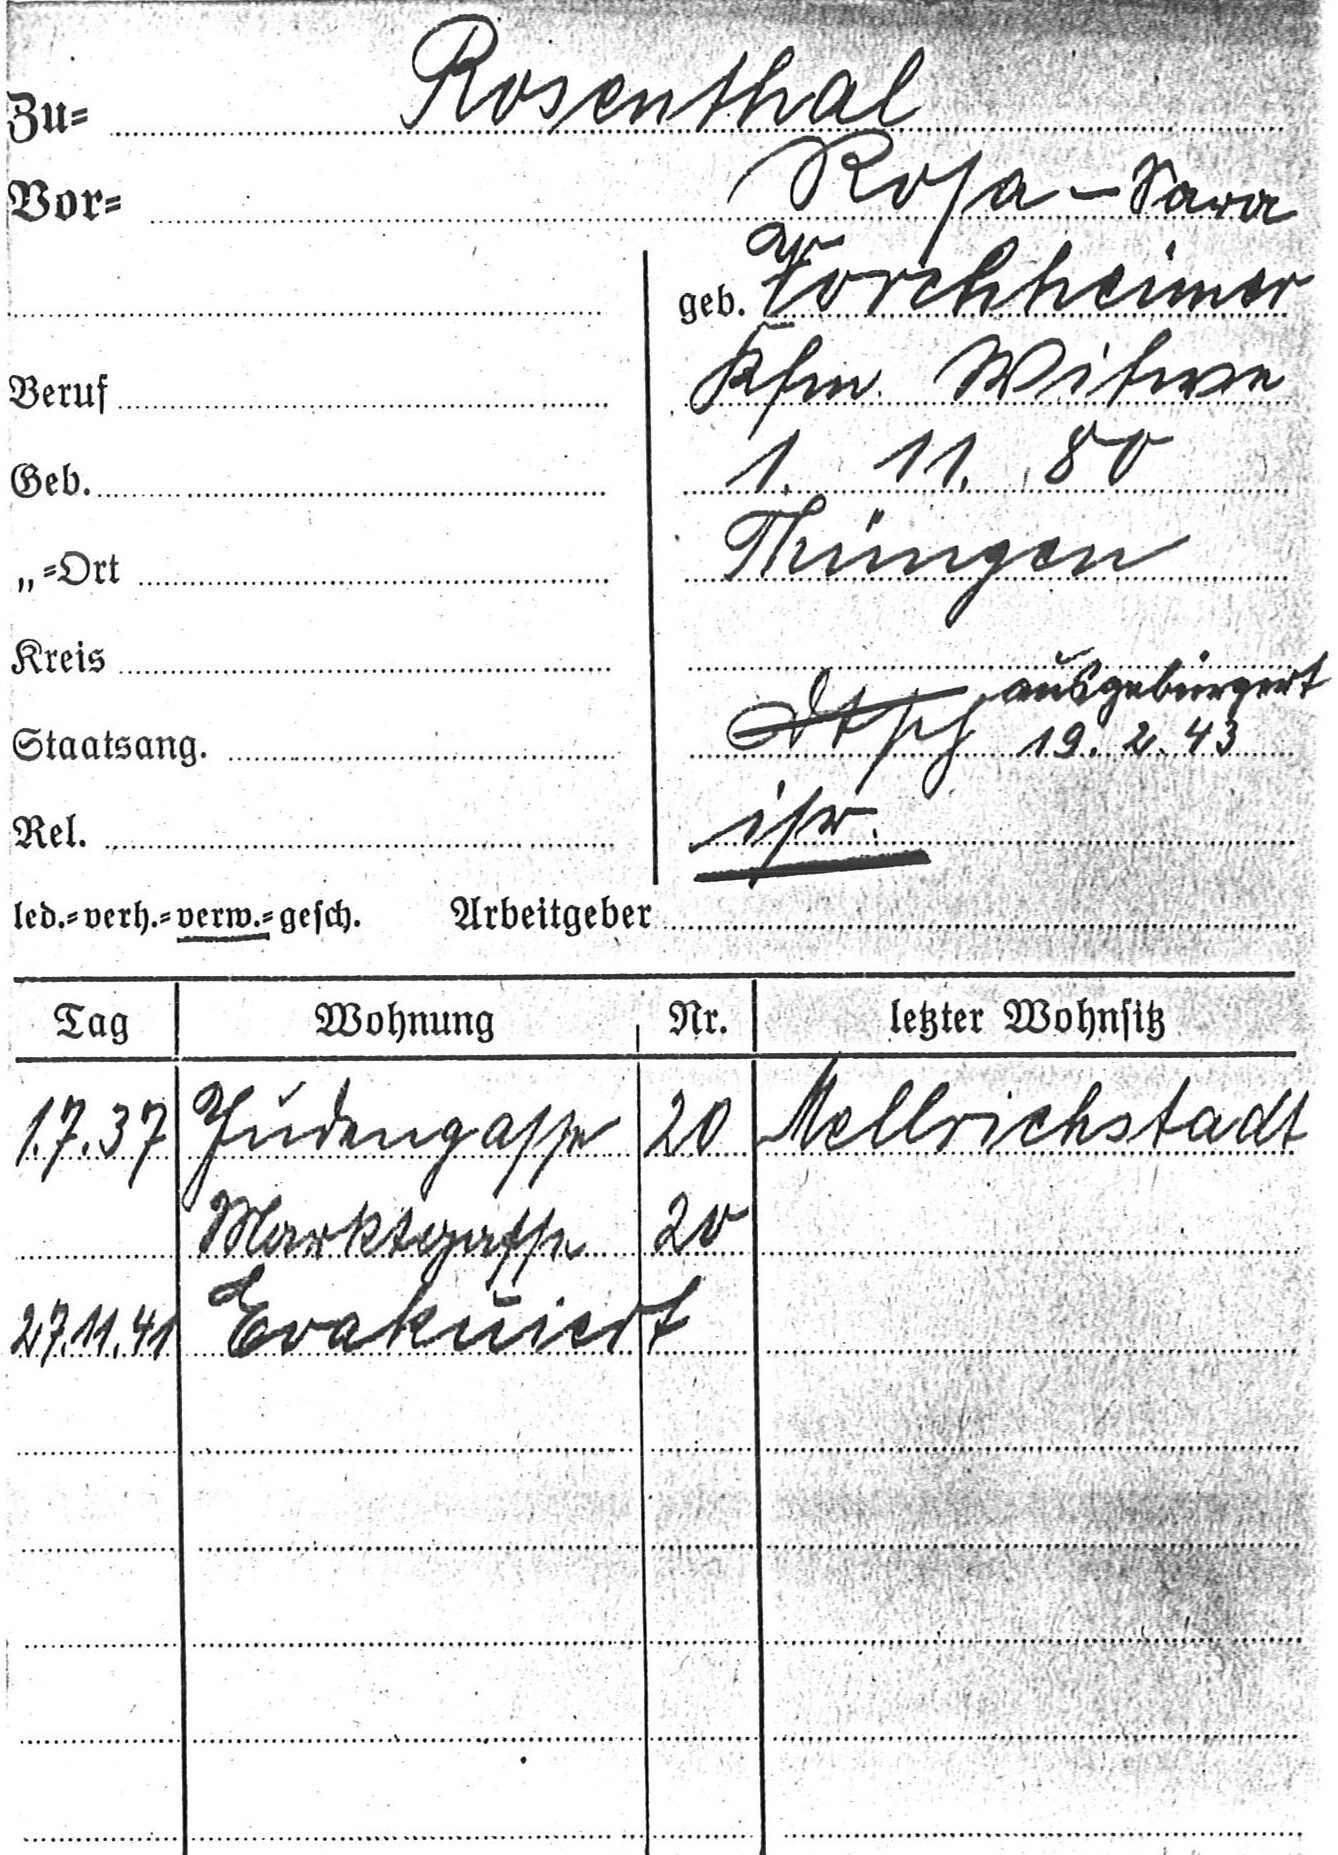 Zu= Rosenthal
Vor= Rosa - Sara
geb. Forchheimer
Beruf Kfm. Witwe
Geb. 1. 11. 80
„=Ort Thüngen
Kreis
Staatsang. Dtsch ausgebürgert
19. 2. 43
Rel. isr.
led.=verh.=verw.=gesch. Arbeitgeber
Tag Wohnung Nr. letzter Wohnsitz
1.7.37 Judengasse 20 Mellrichstadt
Marktgasse 20
27.11.41 Evakuiert